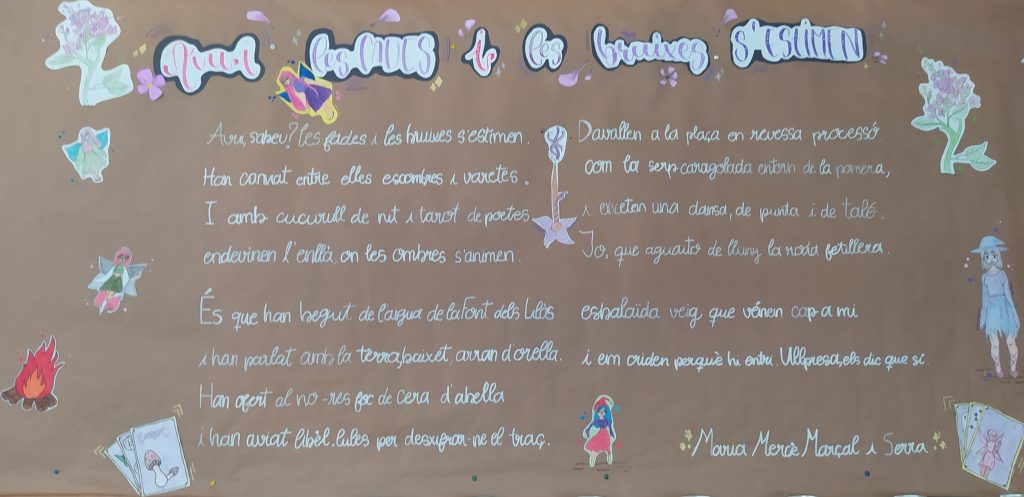 Avui les FADES i les bruixes S'ESTIMEN
Avui, sabeu? les fades i les bruixes s'estimen.
Han canviat entre elles escombres i varetes.
I amb cucurull de nit i tarot de poetes
endevinen l'enllà, on les ombres s'animen.
És que han begut de l'aigua de la Font dels Lilàs
i han parlat amb la terra, baixet, arran d'orella.
Han ofert al no-res foc de cera d'abella
i han aviat libèl.lules per desxifrar-ne el traç.
Davallen a la plaça en revessa processó
com la serp caragolada entorn de la pomera,
i enceten una dansa, de punta i de taló.
Jo, que aguaito de lluny la roda fetillera
esbalaïda veig que vénen cap a mi
i em criden perquè hi entri. Ullpresa, els dic que sí.
Maria Mercè Marçal i Serra